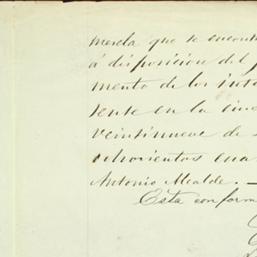 mezcla que se encont
á disposicion del
mento de los inte
tente en la ciu
veintinueve de
ochocientos cua
Antonio Alcalde. —
Esta conform